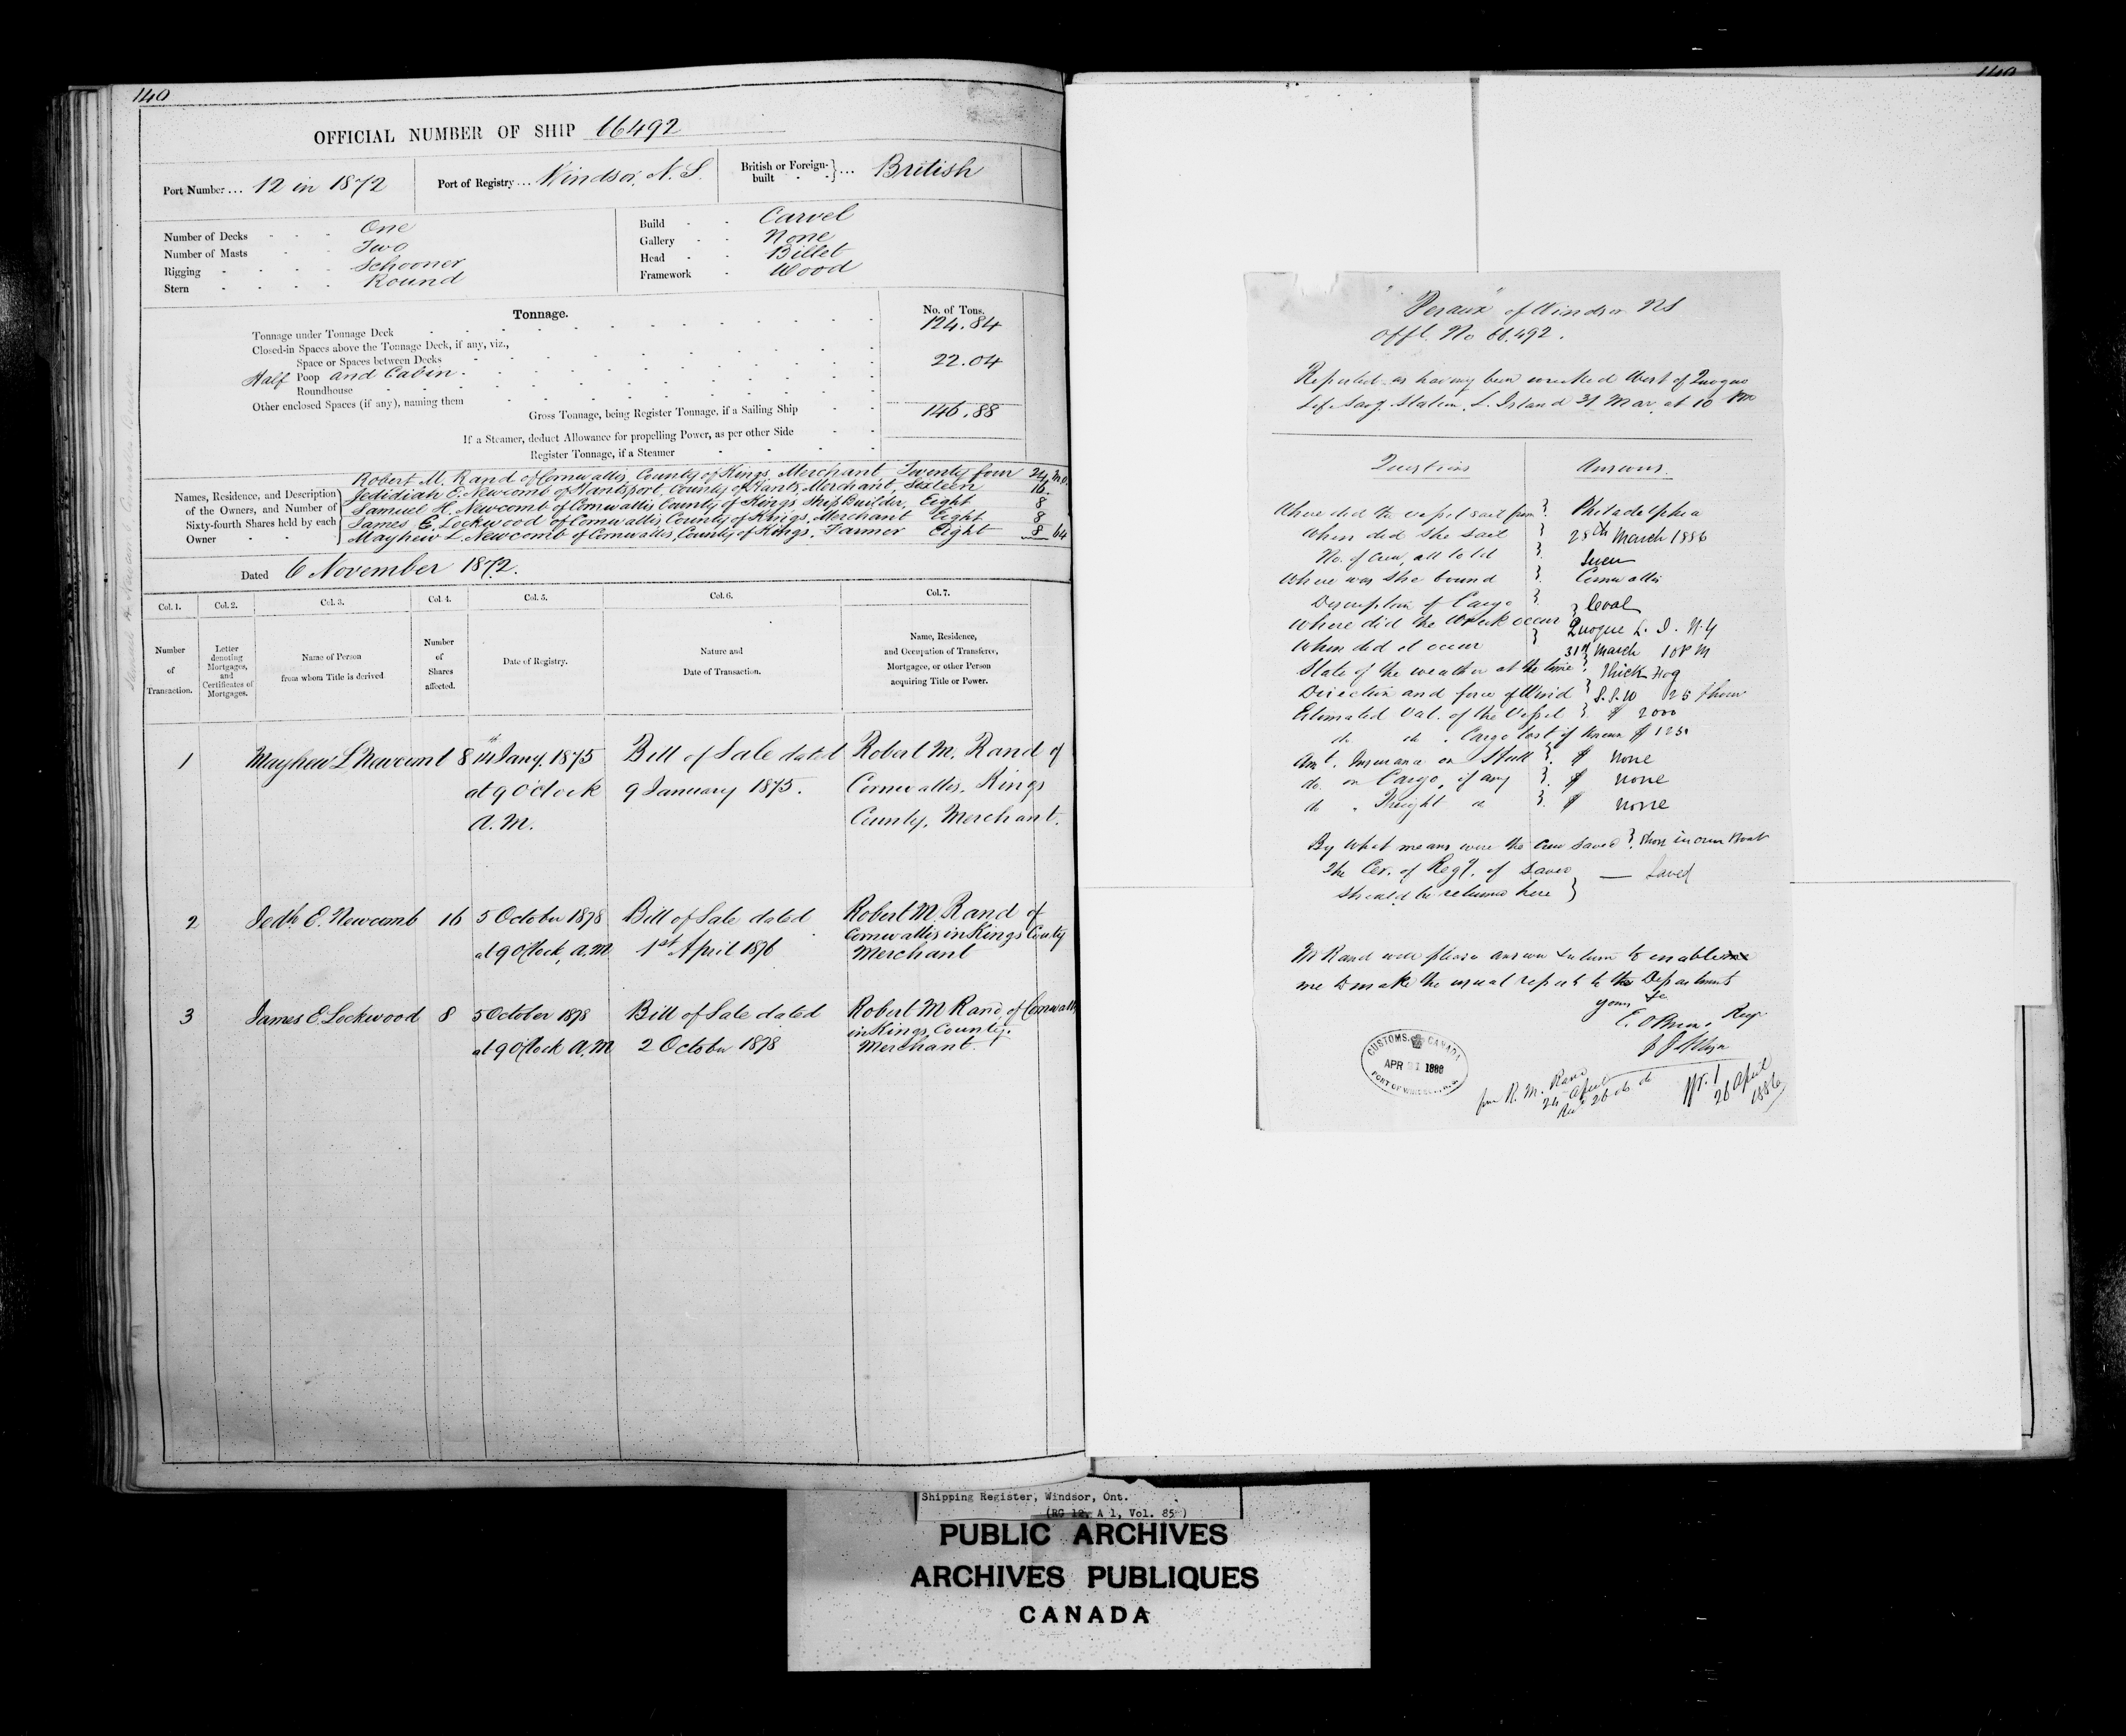 140
OFFICIAL NUMBER OF SHIP 66492
Port Number ... 12 in 1872
Port of Registry ... Windsor, N. S.
British or Foreign-built } ... British
Number of Decks - - - One
Number of Masts - - Two
Rigging - - - - Schooner
Stern - - - - Round
Build - - Carvel
Gallery - - None
Head - - Billet
Framework - Wood
Tonnage.
No. of Tons.
Tonnage under Tonnage Deck 124.84
Closed-in Spaces above the Tonnage Deck, if any, viz.,
Space or Spaces between Decks
Half Poop and Cabin. 22.04
Roundhouse
Other enclosed Spaces (if any), naming them
Gross Tonnage, being Register Tonnage, if a Sailing Ship 146.88
If a Steamer, deduct Allowance for propelling Power, as per other Side
Register Tonnage, if a Steamer
Names, Residence, and Description of the Owners, and Number of Sixty-fourth Shares held by each Owner
Robert M. Rand of Cornwallis, County of Kings, Merchant, Twenty four 24
Jedidiah E. Newcomb of Hantsport, County of Hants, Merchant, Sixteen 16
Samuel H. Newcomb of Cornwallis County of Kings Ship Builder, Eight 8
James E. Lockwood of Cornwallis County of Kings, Merchant Eight 8
Mayhew L. Newcomb of Cornwallis, County of Kings, Farmer Eight 8 64
Dated 6 November 1872.
Col. 1. Col. 2. Col. 3. Col. 4. Col. 5. Col. 6. Col. 7.
Number of Transaction.
Letter denoting Mortgages, and Certificates of Mortgages.
Name of Person from whom Title is derived
Number of Shares affected.
Date of Registry.
Nature and Date of Transaction.
Name, Residence, and Occupation of Transferee, Mortgagee, or other Person acquiring Title or Power.
1 Mayhew L Newcomb 8 14th Jany. 1875 Bill of Sale dated Robert M. Rand of
at 9 O'clock 9 January 1875. Cornwallis, Kings
A.M. County, Merchant.
2 Jedh. E. Newcomb 16 5 October 1878 Bill of Sale dated Robert M. Rand of
Cornwallis in Kings County
at 9 O'Clock, A.M 1st April 1876 Merchant
3 James E. Lockwood 8 5 October 1878 Bill of Sale dated Robert M Rand, of Cornwallis
in Kings County.
at 9 O'Clock A.M 2 October 1878 Merchant.
140
of Windsor NS
Offl. No 66,492.
Reported as having been wrecked West of Quogue
Life Savg. Station, L. Island 31 Mar. at 10 PM
Questions Answers.
Where did the vessel sail from } Philadelphia
When did she sail } 28th March 1886
No. of Crew, all told } Seven
Where was she bound } Cornwallis
Description of Cargo } Coal
Where did the Wreck occur } Quogue L. I. N.Y
When did it occur } 31st March 10 PM
State of the weather at the time } Thick Fog
Direction and force of Wind } S.S.W 25 p hour
Estimated Val. of the Vessel } $ 2000
do do . Cargo lost if known $ 1250
Amt. Insurance on Hull } $ none
do. on Cargo, if any } $ none
do " Freight do } $ none
By what means were the Crew saved }
The Cer. of Regy. if saved — Saved
should be returned here }
Mr Rand will please answer & return to enable
me to make the usual report to the Department
yours &c
CUSTOMS, CANADA
APR 21 1886
from R. M. Rand
24 April
26 April
1886
Shipping Register, Windsor, Ont.
(RG 12, A 1, Vol. 85)
PUBLIC ARCHIVES
ARCHIVES PUBLIQUES
CANADA